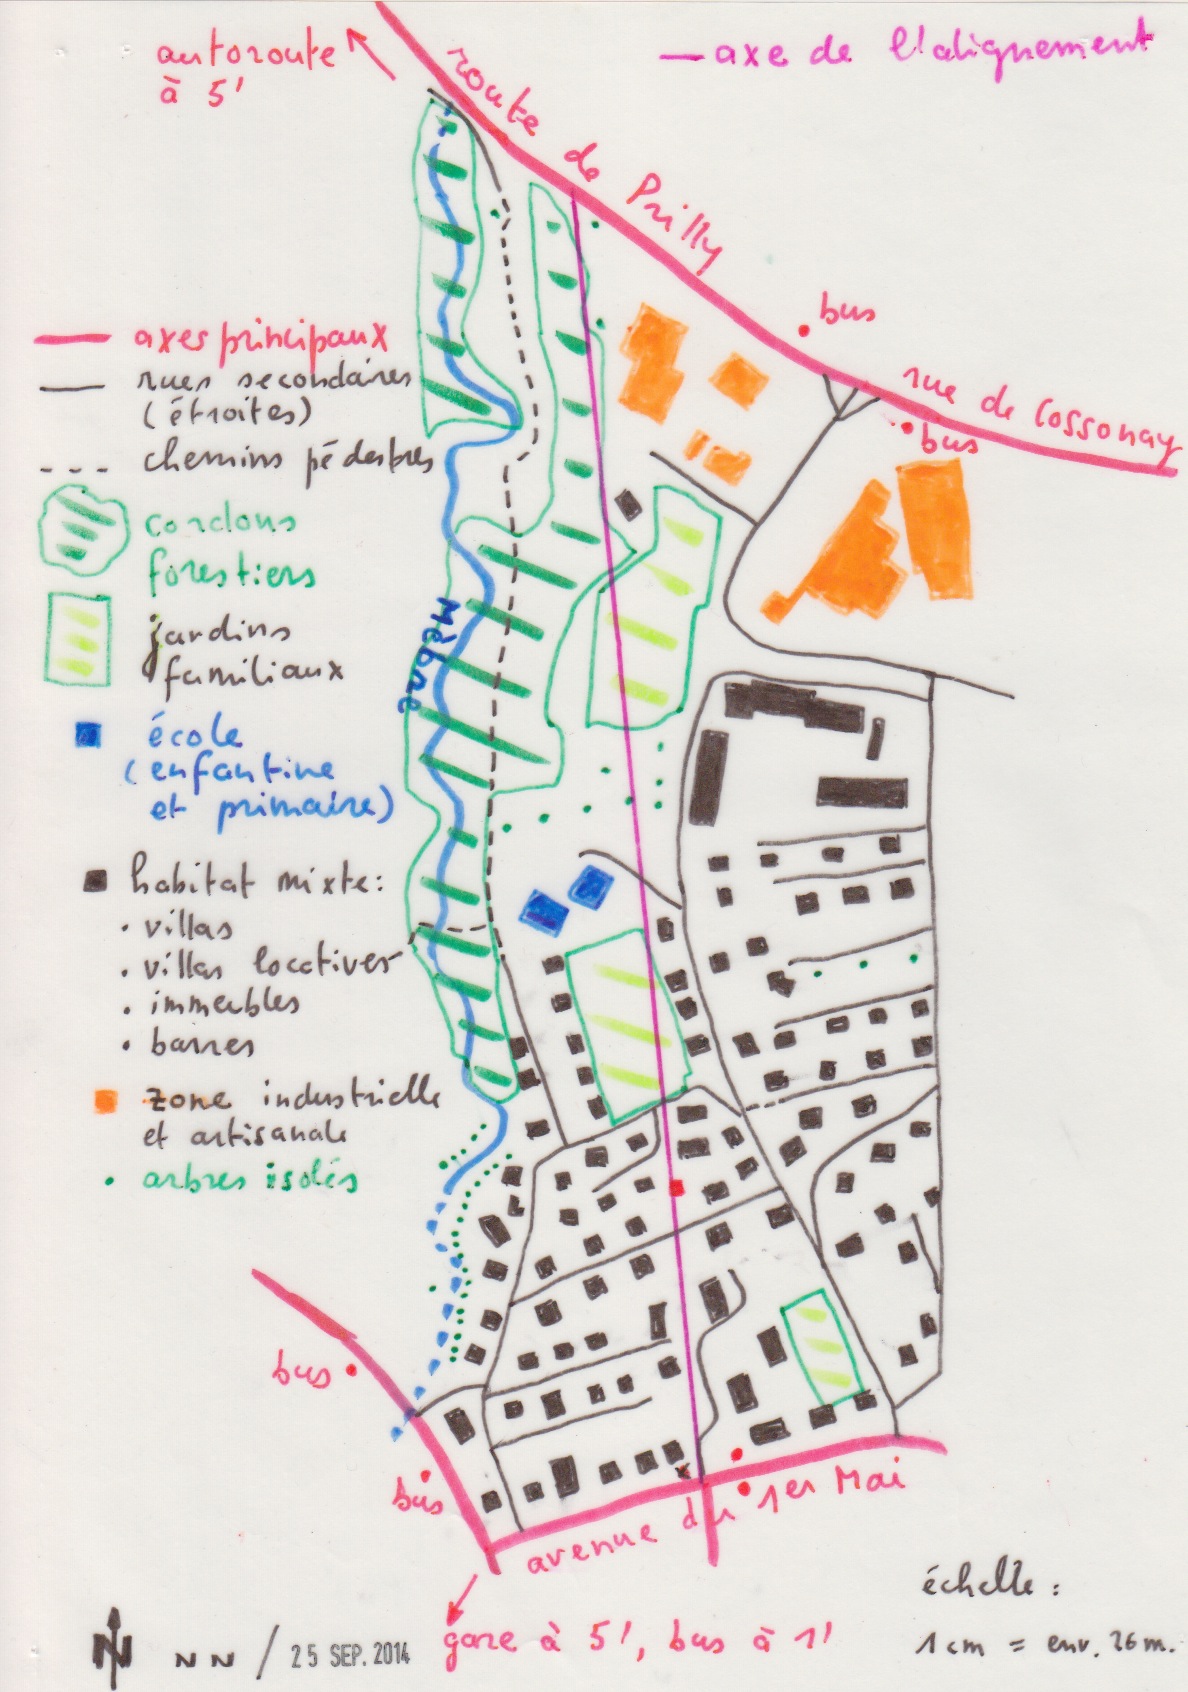 autoroute
à 5'
— axe de l'alignement
route de Prilly
bus
rue de Cossonay
bus
axes principaux
rues secondaires
(étroites)
chemins pédestres
cordons
forestiers
jardins
familiaux
Mèbre
école
(enfantine
et primaire)
habitat mixte:
• villas
• villas locatives
• immeubles
• barres
zone industrielle
et artisanale
arbres isolés
bus
bus
avenue du 1er Mai
gare à 5', bus à 1'
échelle:
1 cm = env. 26 m.
N
NN / 25 SEP. 2014